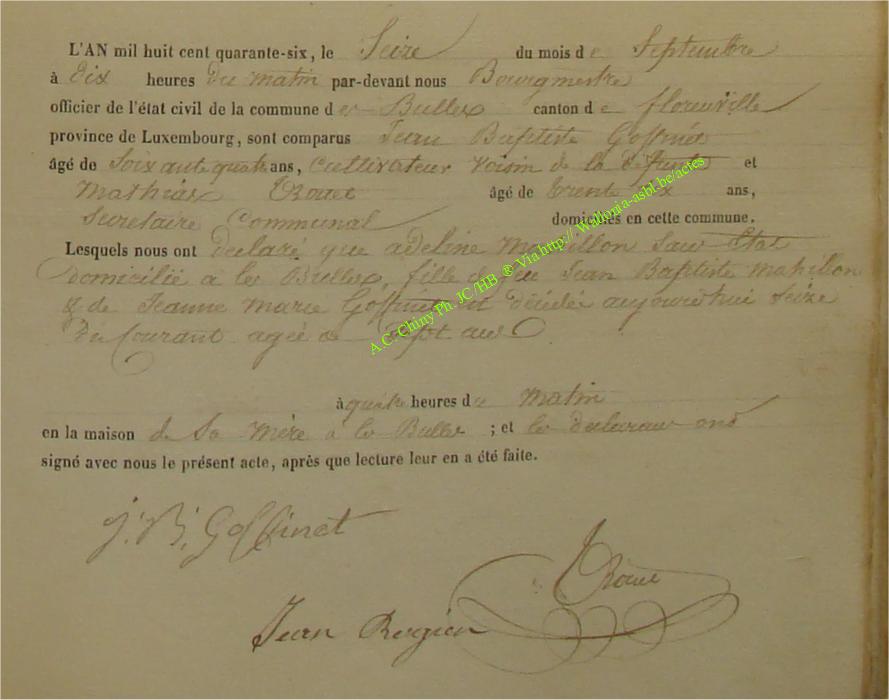 L'AN mil huit cent quarante-six, le Seize du mois de Septembre
à dix heures du matin par-devant nous Bourgmestre
officier de l'état civil de la commune de Bulles canton de florenville
province de Luxembourg, sont comparus Jean Baptiste Goffinet
âgé de Soixante quatre ans, Cultivateur voisin de la défunte et
Mathias âgé de trente ans,
Secretaire Communal domiciliés en cette commune.
Lesquels nous ont declaré que adeline Mahillon Sans Etat
domicilié à les Bulles, fille de feu Jean Baptiste Mahillon
& de Jeanne Marie Goffinet décédée aujourd'hui Seize
du Courant agée de Sept ans
à quatre heures du Matin
en la maison de Sa Mère à les Bulles ; et les declarans ont
signé avec nous le présent acte, après que lecture leur en a été faite.
J. B. Goffinet
Jean
A.C. Chiny Ph. JC /HB ® Via http:// Wallonia-asbl.be/actes